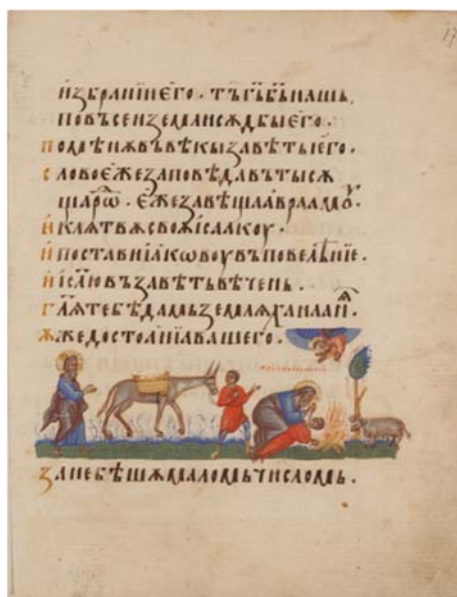 избраниіего. тъгь҃бъ҃нашь.
повьсеиземлисѫдбыего.
помѣнѫвъвѣкызавѣтыего.
словоежезаповѣдавътысѧ
щарѡⷨ. ежезавѣщааврааⷨмоу.
иклѧтвѫсвоѫісаакоу.
ипоставиіаковоувъповелѣние.
иісл҃ювъзавѣтьвѣчень.
гл҃ѧтебѣдамьземлѧханааⷩѧ.
ѫжедостоаніавашего.
занебѣшѧмаломьчисломь.